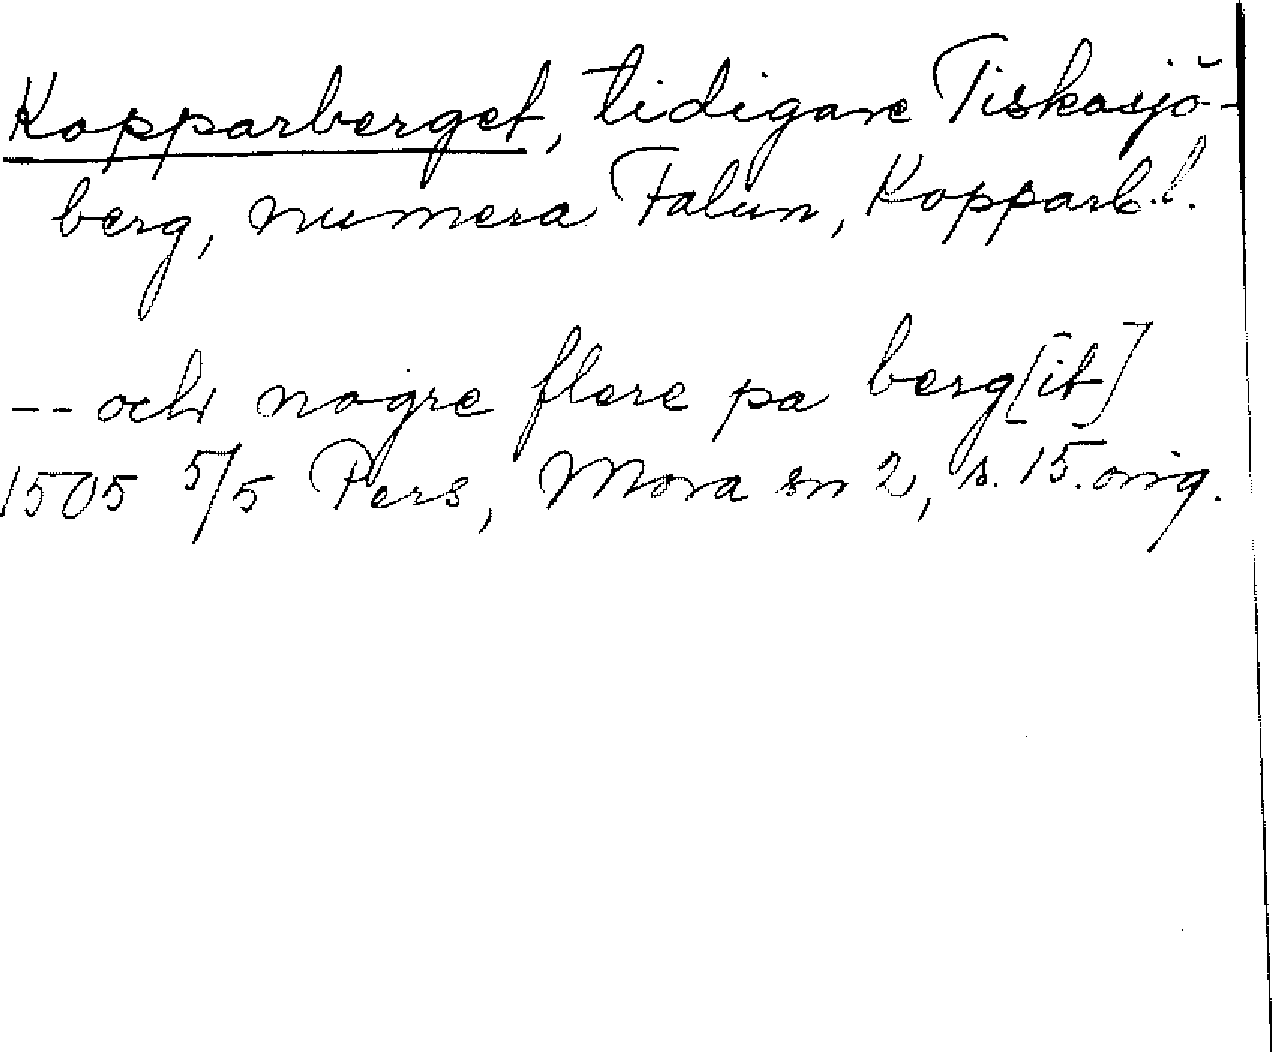 Kopparberget, tidigare Tiskasjö-
berg, numera Falun, Kopparb.l.
-- och nogre flere pa berg[it]
1505 5/5 Pers, Mora sn 2, s. 15. orig.